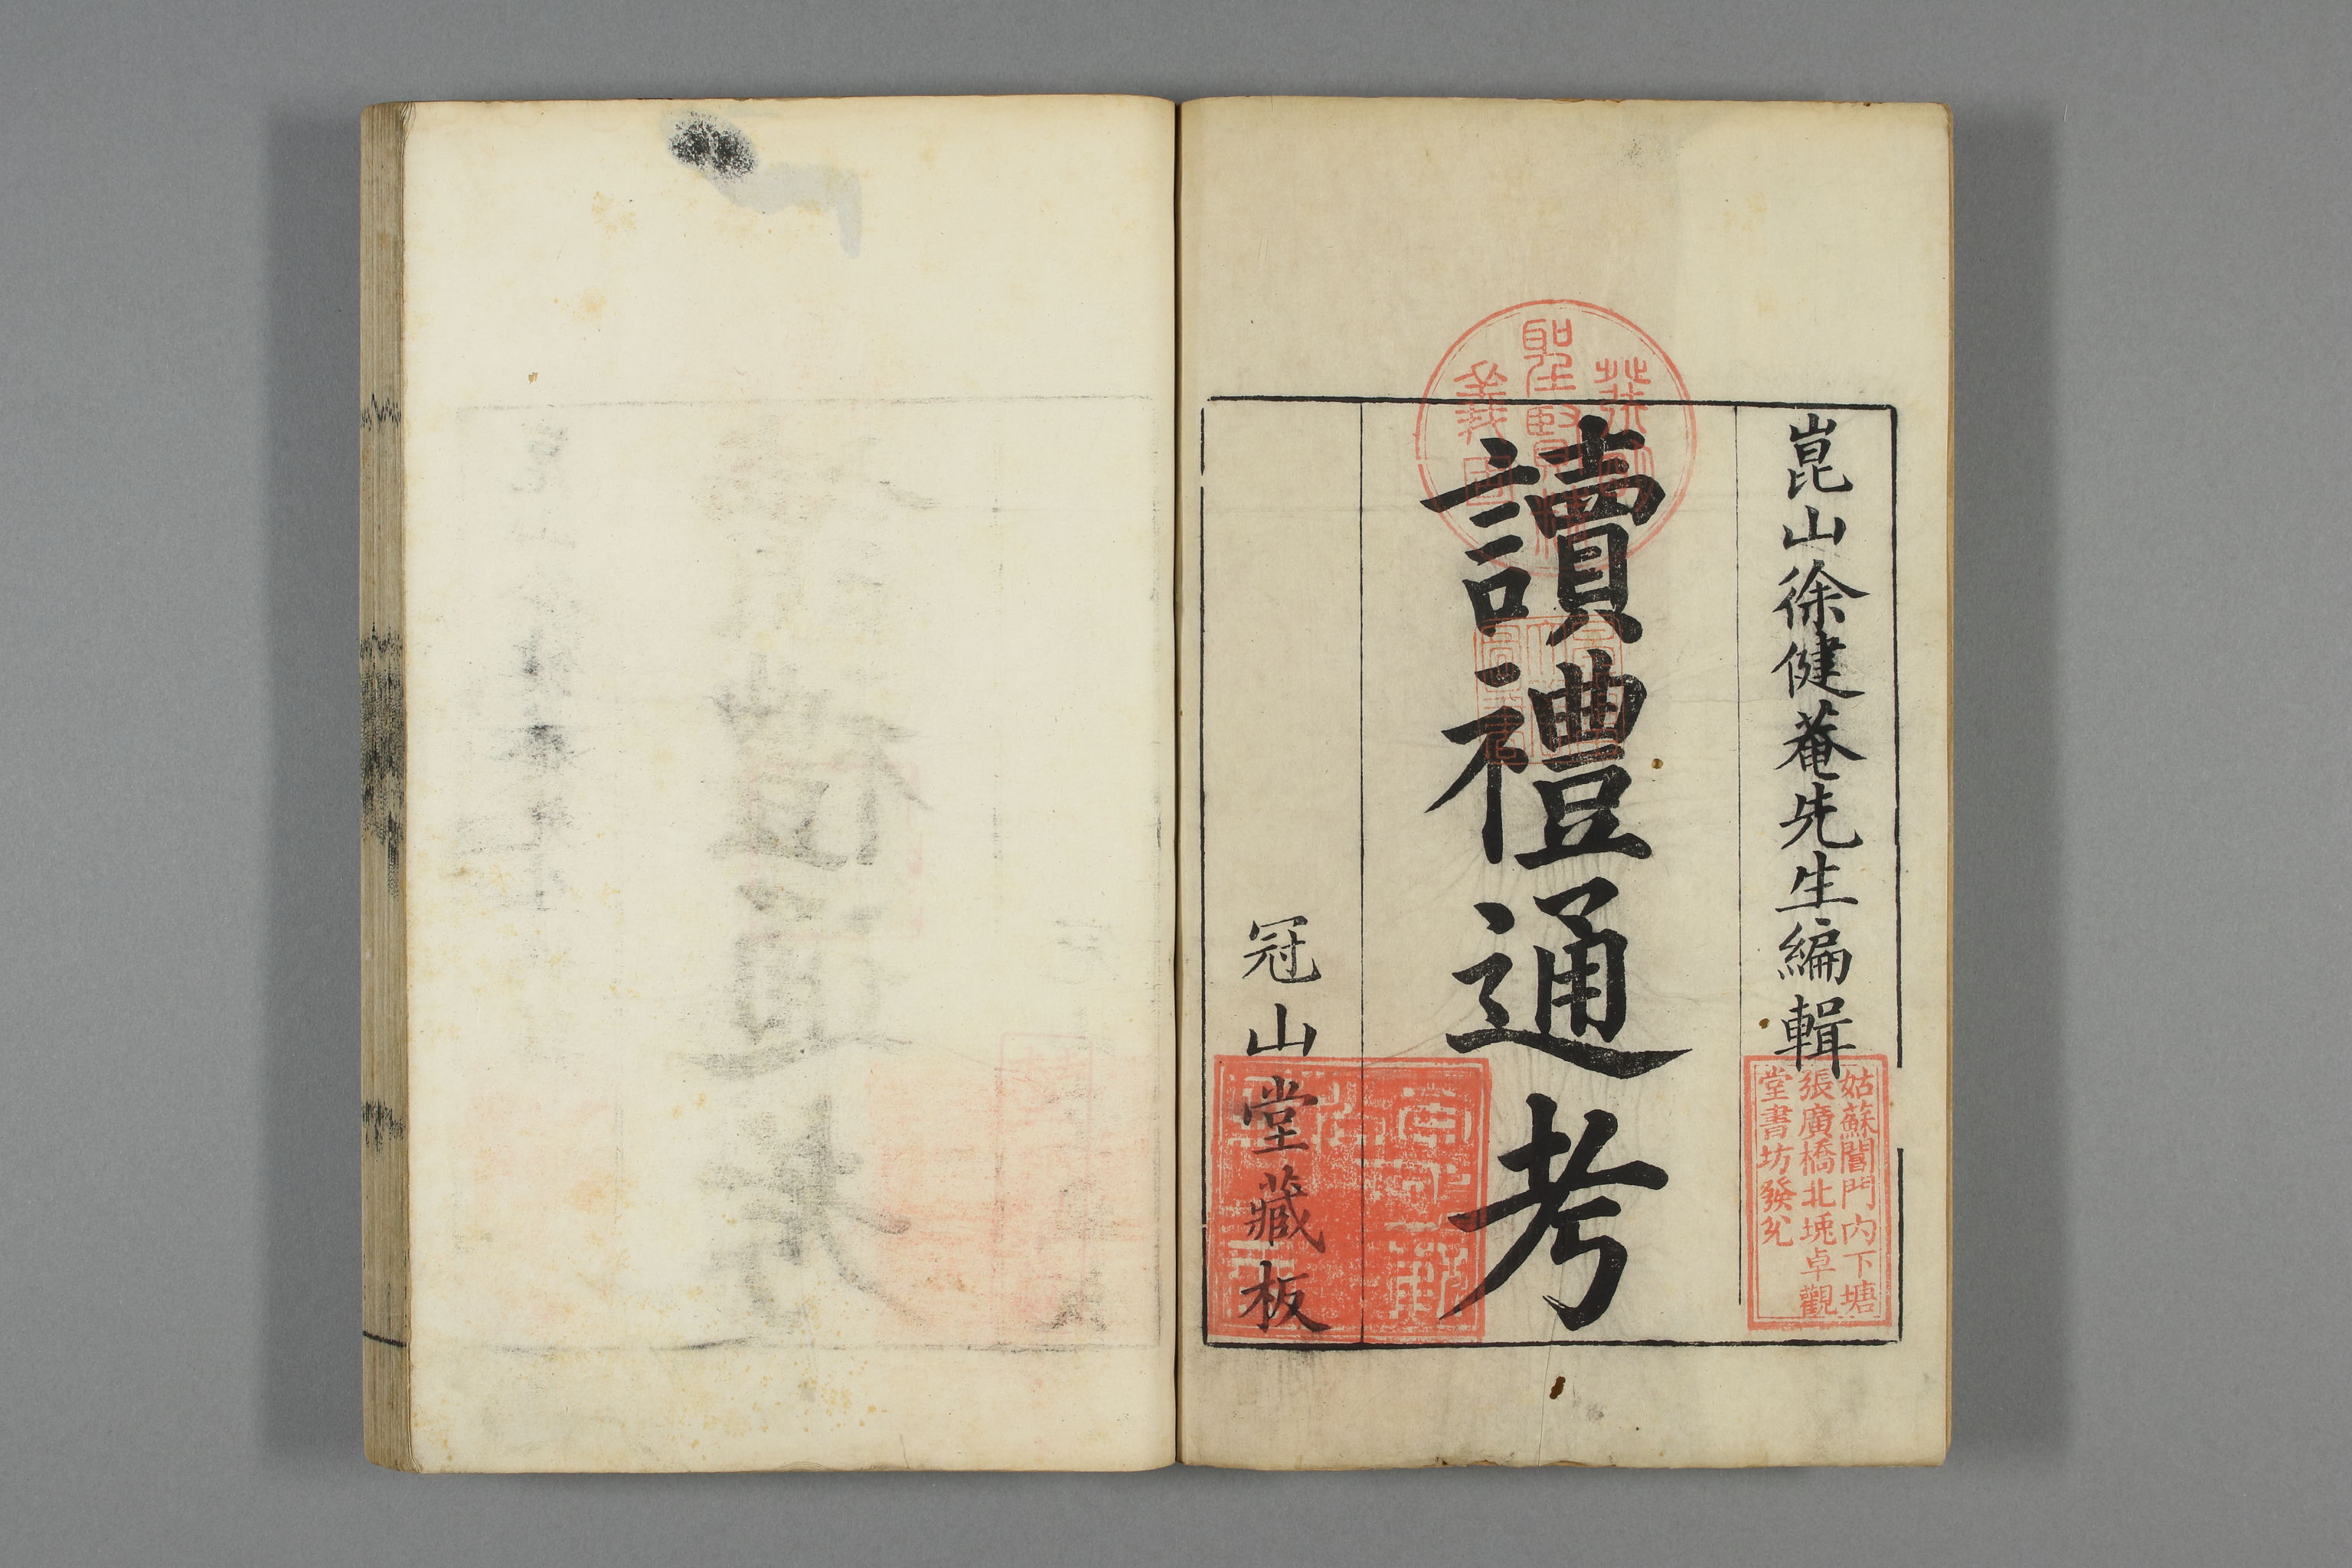 崑山徐健菴先生編輯
姑蘇閶門內下塘
張廣橋北堍卓觀
堂書坊發兌
讀禮通考
冠山堂藏板